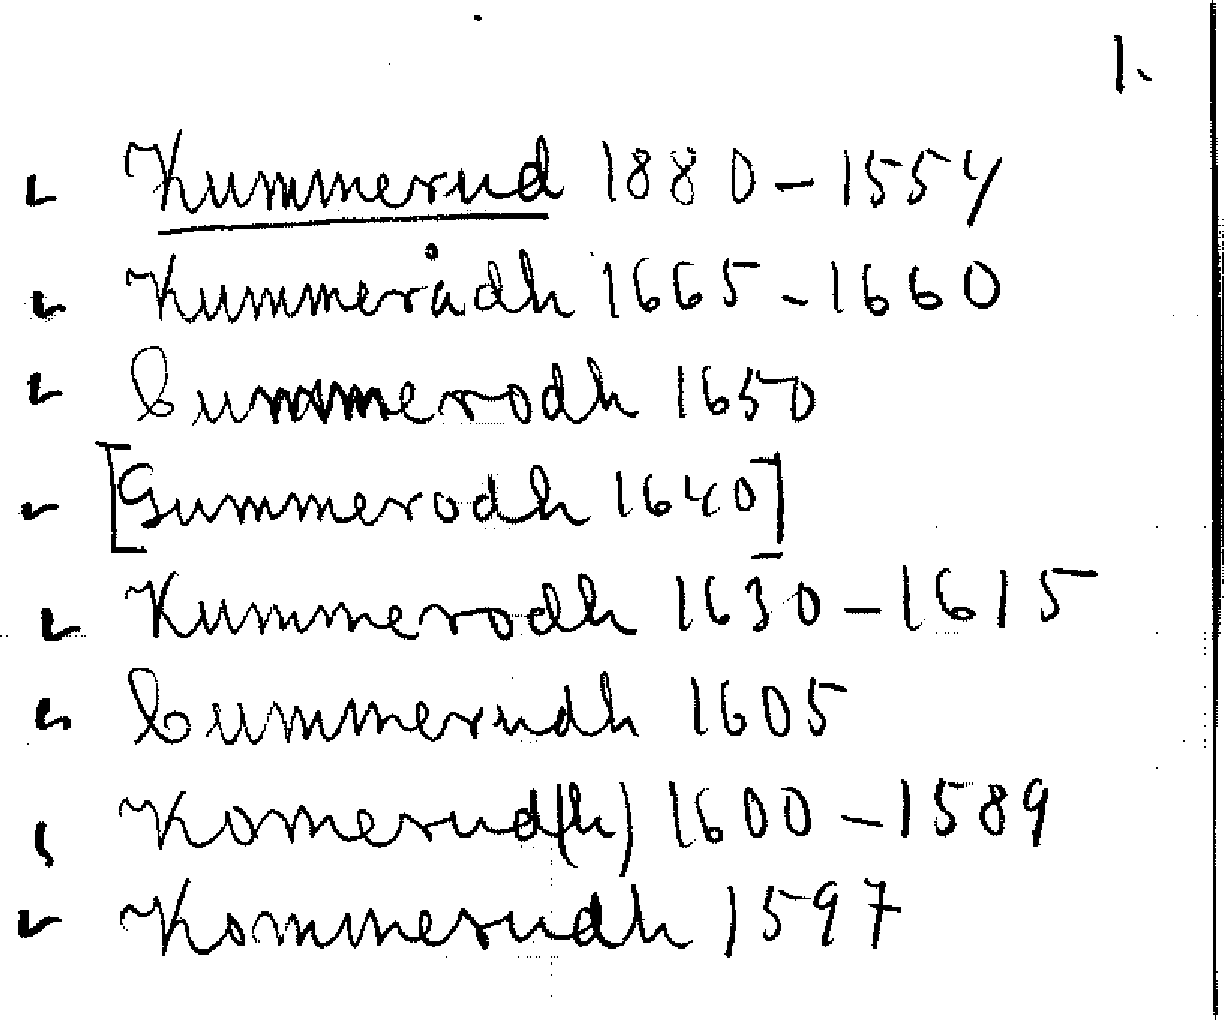 1.
Kummerud 1880 - 1554
Kummerådh 1665 - 1660
Cummerodh 1650
[Gummerodh 1640]
Kummerodh 1630 - 1615
Cummerudh 1605
Komerud(h) 1600 - 1589
Kommerudh 1597